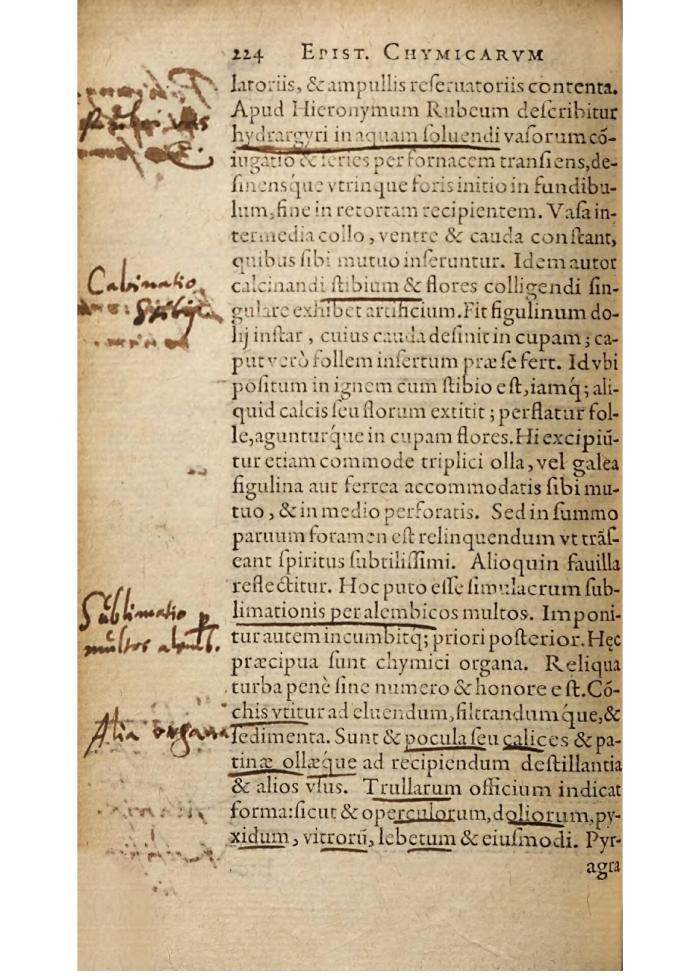 224 EPIST. CHYMICARVM
latoriis, & ampullis reſeruatoriis contenta.
Apud Hieronymum Rubeum deſcribitur
hydrargyri in aquam ſoluendi vaſorum cō-
iugatio & ſeries per fornacem tranſiens, de-
ſinensq́ue vtrinque foris initio in fundibu-
lum, fine in retortam recipientem. Vaſa in-
termedia collo, ventre & cauda conſtant,
quibus ſibi mutuo inſeruntur. Idem autor
calcinandi ſtibium & flores colligendi ſin-
gulare exhibet artificium. Fit figulinum do-
lij inſtar, cuius cauda definit in cupam; ca-
put verò follem inſertum præ ſe fert. Id vbi
poſitum in ignem cum ſtibio eſt, iamq́; ali-
quid calcis ſeu florum extitit; perflatur fol-
le, agunturq́ue in cupam flores. Hi excipiū-
tur etiam commode triplici olla, vel galea
figulina aut ferrea accommodatis ſibi mu-
tuo, & in medio perforatis. Sed in ſummo
paruum foramen eſt relinquendum vt trāſ-
eant ſpiritus ſubtiliſſimi. Alioquin fauilla
reflectitur. Hoc puto eſſe ſimulacrum ſub-
limationis per alembicos multos. Imponi-
tur autem incumbitq; priori poſterior. Hęc
præcipua ſunt chymici organa. Reliqua
turba penè ſine numero & honore eſt. Cō-
chis vtitur ad eluendum, filtrandumq́ue, &
ſedimenta. Sunt & pocula ſeu calices & pa-
tinæ ollæq́ue ad recipiendum deſtillantia
& alios vſus. Trullarum officium indicat
forma: ſicut & operculorum, doliorum, py-
xidum, vitrorū, lebetum & eiuſmodi. Pyr-
agra
Calcinatio
Stibij
Sublimatio p
multos alemb.
Alia organa